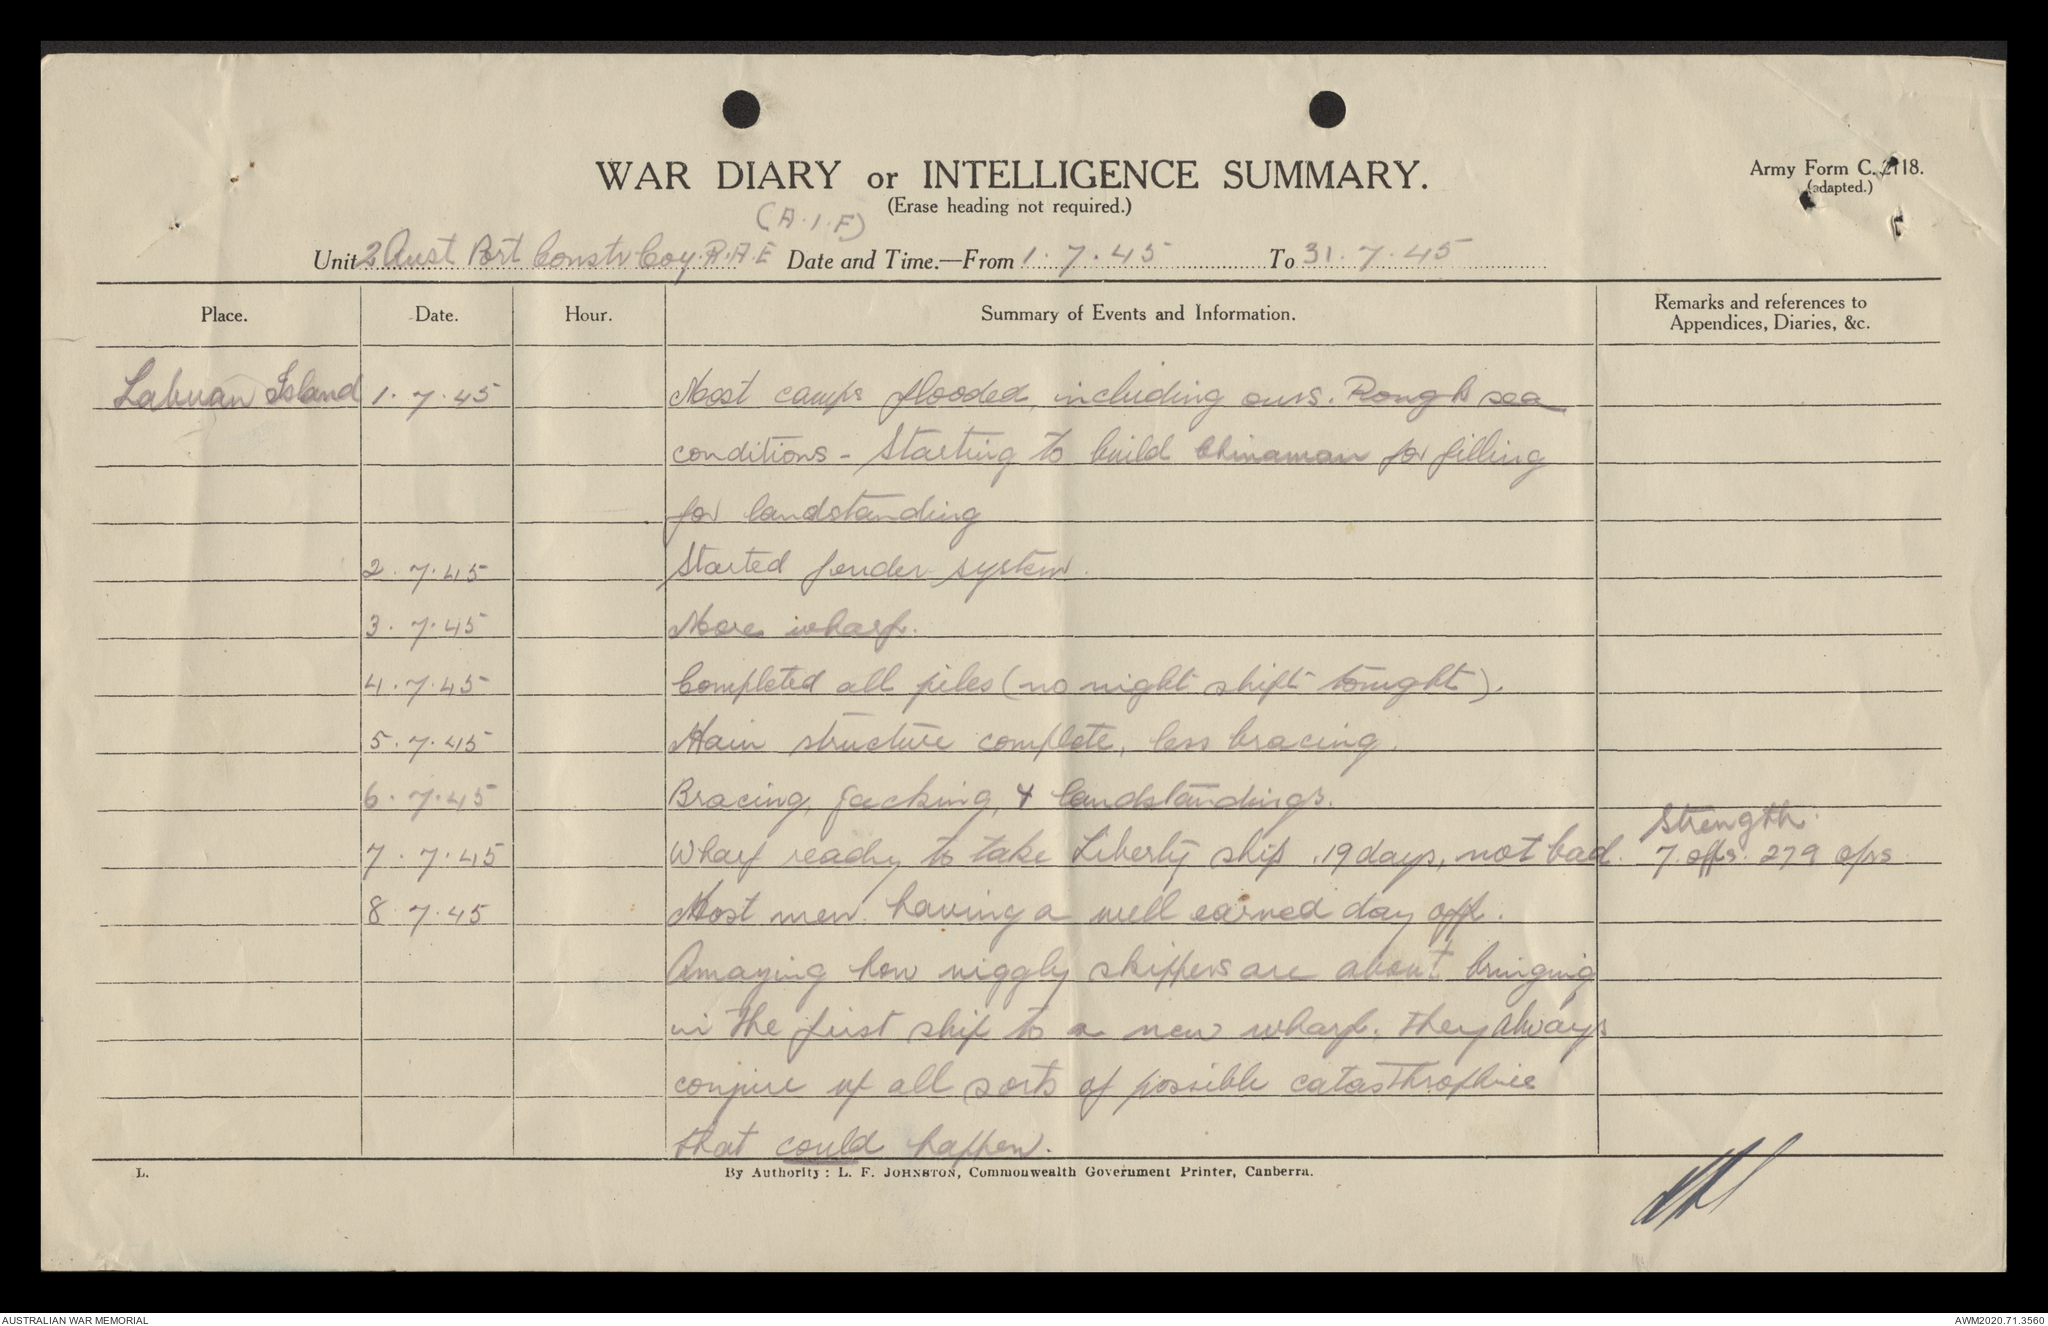 WAR DIARY or INTELLIGENCE SUMMARY.
Army Form C. 2118.
(adapted.)
(Erase heading not required.)
(A.I.F)
Unit 2 Aust Port Constr Coy. R.A.E Date and Time.—From 1.7.45 To 31.7.45
Place. Date. Hour. Summary of Events and Information. Remarks and references to
Appendices, Diaries, &c.
Labuan Island 1.7.45 Most camps flooded, including ours. Rough sea
conditions - Starting to build Chinaman for filling
for landstanding
2.7.45 Started fender system.
3.7.45 More wharf.
4.7.45 Completed all piles (no night shift tonight).
5.7.45 Main structure complete, less bracing.
6.7.45 Bracing, Jacking, & landstandings.
Strength.
7.7.45 Wharf ready to take Liberty ship. 19 days, not bad. 7 offs. 279 ors
8.7.45 Most men having a well earned day off.
Amazing how niggly skippers are about bringing
in the first ship to a new wharf. They always
conjure up all sorts of possible catasthrophies
that could happen.
L. By Authority: L. F. JOHNSTON, Commonwealth Government Printer, Canberra.
AUSTRALIAN WAR MEMORIAL AWM2020.71.3560